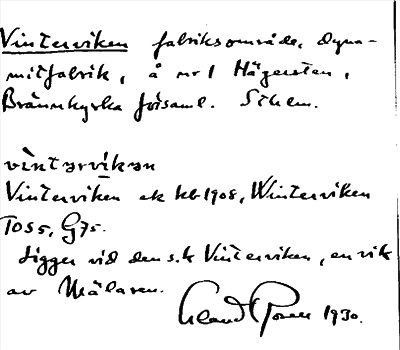 Vinterviken fabriksområde, dyna-
mitfabrik, å nr 1 Hägersten,
Brännkyrka församl. Sthlm.
vìntərvíkən
Vinterviken ek kb 1908, Winterviken
T055, G75.
Ligger vid den s.k. Vinterviken, en vik
av Mälaren.
1930.